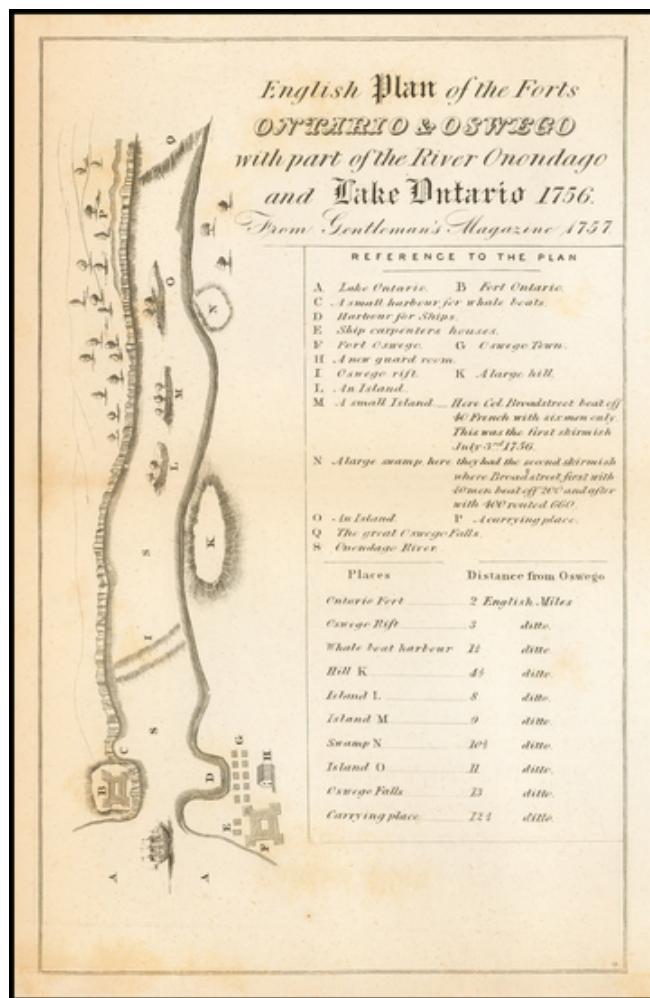 English Plan of the Forts
ONTARIO & OSWEGO
with part of the River Onondago
and Lake Ontario 1756.
From Gentleman's Magazine 1757
REFERENCE TO THE PLAN
A Lake Ontario. B Fort Ontario.
C A small harbour for whale boats.
D Harbour for Ships.
E Ship carpenters houses.
F Fort Oswego. G Oswego Town.
H A new guard room.
I Oswego rift. K A large hill.
L An Island.
M A small Island. Here Col. Broadstreet beat off
40 French with six men only.
This was the first skirmish
July 3rd 1756.
N A large swamp here they had the second skirmish
where Broadstreet first with
men beat off 200 and after
with 400 routed 660.
O An Island. P A carrying place.
Q The great Oswego Falls.
S Onondago River.
Places Distance from Oswego
Ontario Fort 2 English Miles
Oswego Rift 3 ditto.
Whale boat harbour ditto.
Hill K ditto.
Island L 8 ditto.
Island M 9 ditto.
Swamp N ditto.
Island O 11 ditto.
Oswego Falls 13 ditto.
Carrying place ditto.
Q
P
O
N
M
L
K
S
I
S
C
B
D
G
H
E
F
A
A